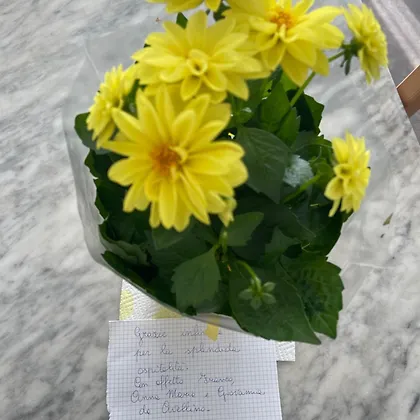 Grazie
per la splendida
ospitalità.
Con affetto
Anna Maria e Giovanna
da Avellino.